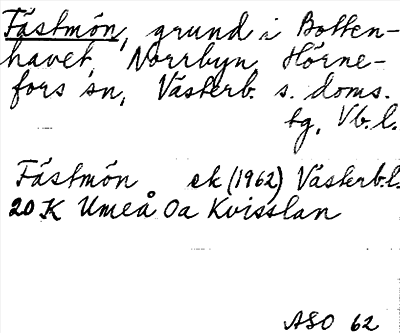 Fästmön, grund i Botten-
havet, Norrbyn, Hörne-
fors sn, Västerb. s. doms.
tg, Vb. l.
Fästmön ek (1962) Västerb.l.
20 K Umeå Oa Kvisslan
ASO 62